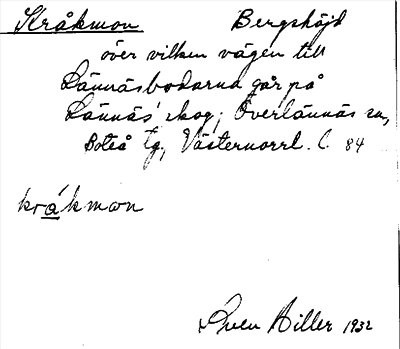 Kråkmon Bergshöjd
över vilken vägen till
Lännäsbodarna går på
Lännäs skog; Överlännäs sn,
Boteå tg, Västernorrl. l. 84
kråkmon
Sven Hiller 1932